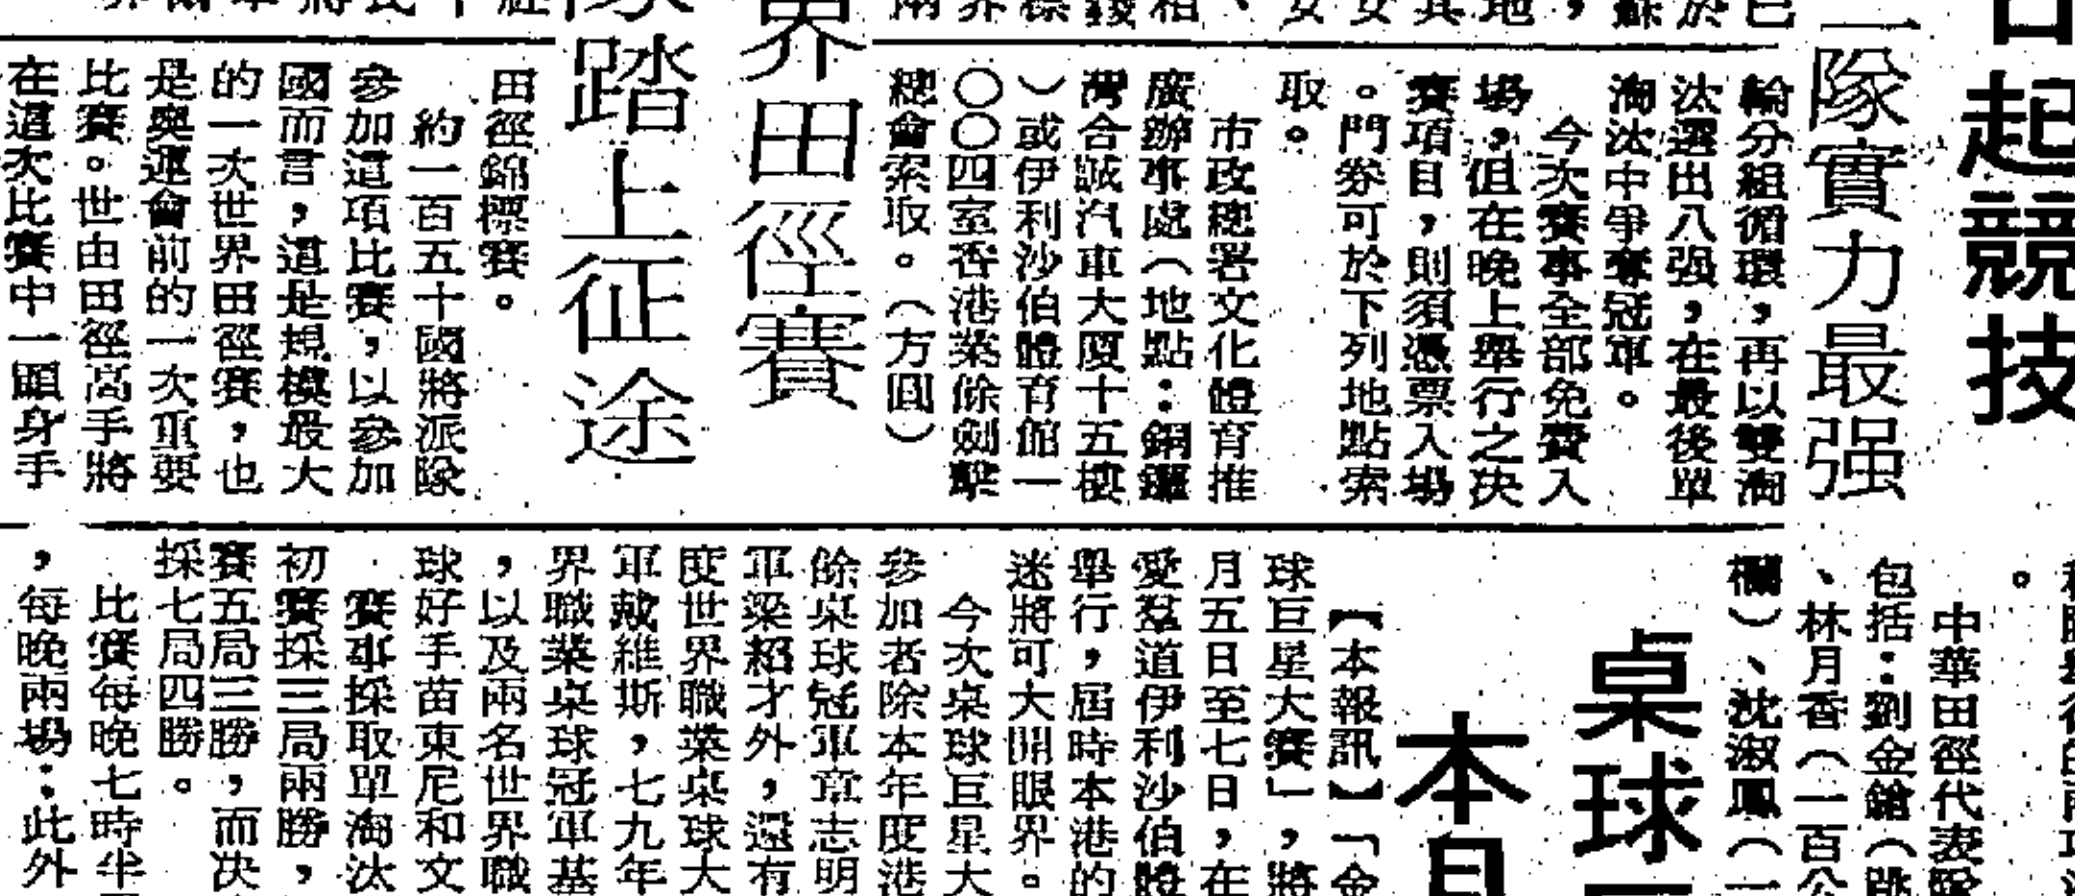 起競技
隊實力最强
輪分組循環，再以雙淘
汰選出八强，在最後單
淘汰中爭奪冠軍。
今次賽事全部免費入
場，但在晚上舉行之决
賽項目，則須憑票入場
。門券可於下列地點索
取。
市政總署文化體育推
廣辦事處（地點：銅鑼
灣合誠汽車大厦十五樓
）或伊利沙伯體育館一
〇〇四室香港業餘劍擊
總會索取。（方圓）
界田徑賽
隊踏上征途
田徑錦標賽。
約一百五十國將派隊
參加這項比賽，以參加
國而言，這是規模最大
的一次世界田徑賽，也
是奧運會前的一次重要
比賽。世由田徑高手將
在這次比賽中一顯身手
中華田徑代表隊
包括：劉金鎗（跳
、林月香（一百公
欄）、沈淑鳳（一
桌球
本
【本報訊】「金
球巨星大賽」，將
月五日至七日，在
愛羣道伊利沙伯體
舉行，屆時本港的
迷將可大開眼界。
今次桌球巨星大
參加者除本年度港
餘桌球冠軍章志明
軍梁紹才外，還有
度世界職業桌球大
軍戴維斯，七九年
界職業桌球冠軍基
，以及兩名世界職
球好手苗東尼和文
賽事採取單淘汰
初賽採三局兩勝，
賽五局三勝，而决
採七局四勝。
比賽每晚七時半
，每晚兩場；此外